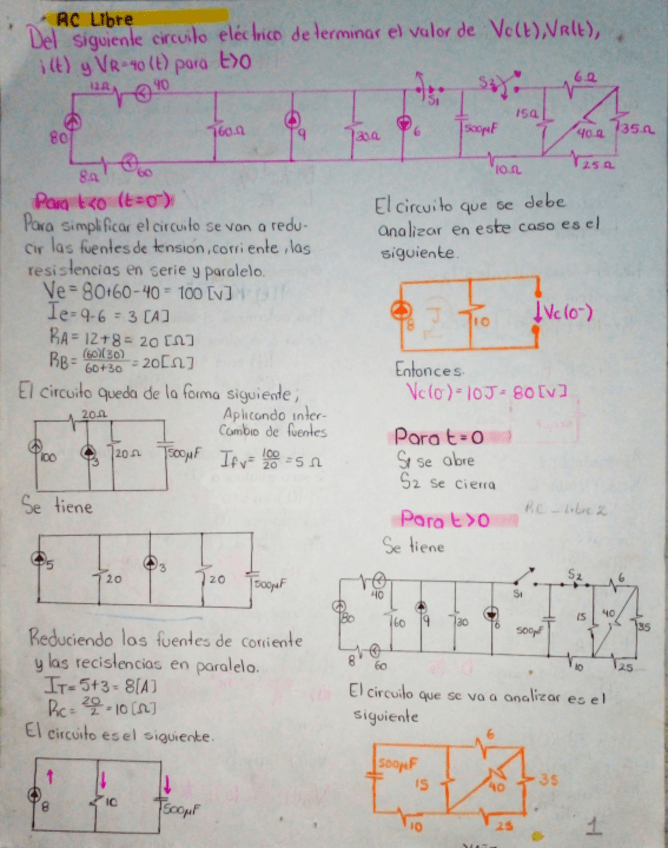 RC Libre
Del siguiente circuito eléctrico determinar el valor de Vc(t), VR(t),
i(t) y VR=40(t) para t>0
12Ω
40
80
8Ω
60
60Ω
9
30Ω
6
S1
500μF
S2
10Ω
15Ω
6Ω
40Ω
35Ω
25Ω
Para t<0 (t=0⁻)
Para simplificar el circuito se van a redu-
cir las fuentes de tensión, corriente, las
resistencias en serie y paralelo.
Ve = 80+60-40 = 100 [V]
Ie = 9-6 = 3 [A]
RA = 12+8 = 20 [Ω]
RB = (60)(30)/60+30 = 20[Ω]
El circuito queda de la forma siguiente;
20Ω
100
3
20Ω
500μF
Aplicando inter-
cambio de fuentes
Ifv = 100/20 = 5 Ω
Se tiene
5
20
3
20
500μF
Reduciendo las fuentes de corriente
y las recistencias en paralelo.
IT = 5+3 = 8[A]
RC = 20/2 = 10[Ω]
El circuito es el siguiente.
8
10
500μF
El circuito que se debe
analizar en este caso es el
siguiente.
8
J
10
Vc(0⁻)
Entonces
Vc(0⁻) = 10J = 80[V]
Para t=0
S1 se abre
S2 se cierra
RC - Libre 2
Para t>0
Se tiene
40
80
8
60
60
9
30
6
S1
500μF
S2
10
15
6
40
35
25
El circuito que se va a analizar es el
siguiente
500μF
15
6
40
35
10
25
1